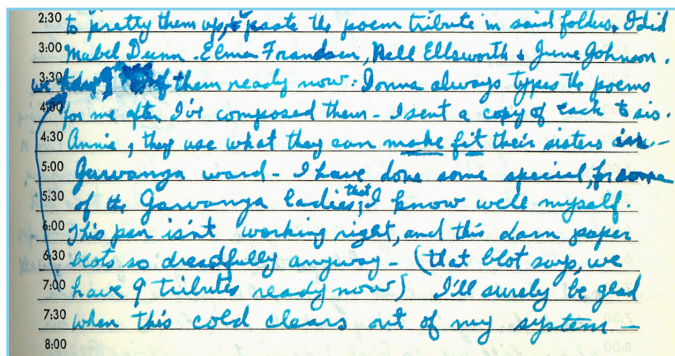 2:30 to pretty them up, & paste the poem tribute in said folder. I did
3:00 Mabel Dunn. Elma Frandsen, Nell Ellsworth & June Johnson.
3:30 we have 9 of them ready now: Donna always types the poems
4:00 for me after I've composed them - I sent a copy of each to sis.
4:30 Annie, they use what they can make fit their sisters in -
5:00 Garvanza ward - I have done some special, for some
5:30 of the Garvanza ladies, that I know well myself.
6:00 This pen isn't working right, and this darn paper
6:30 blots so dreadfully anyway - (that blot says, we
7:00 have 9 tributes ready now) I'll surely be glad
7:30 when this cold clears out of my system -
8:00